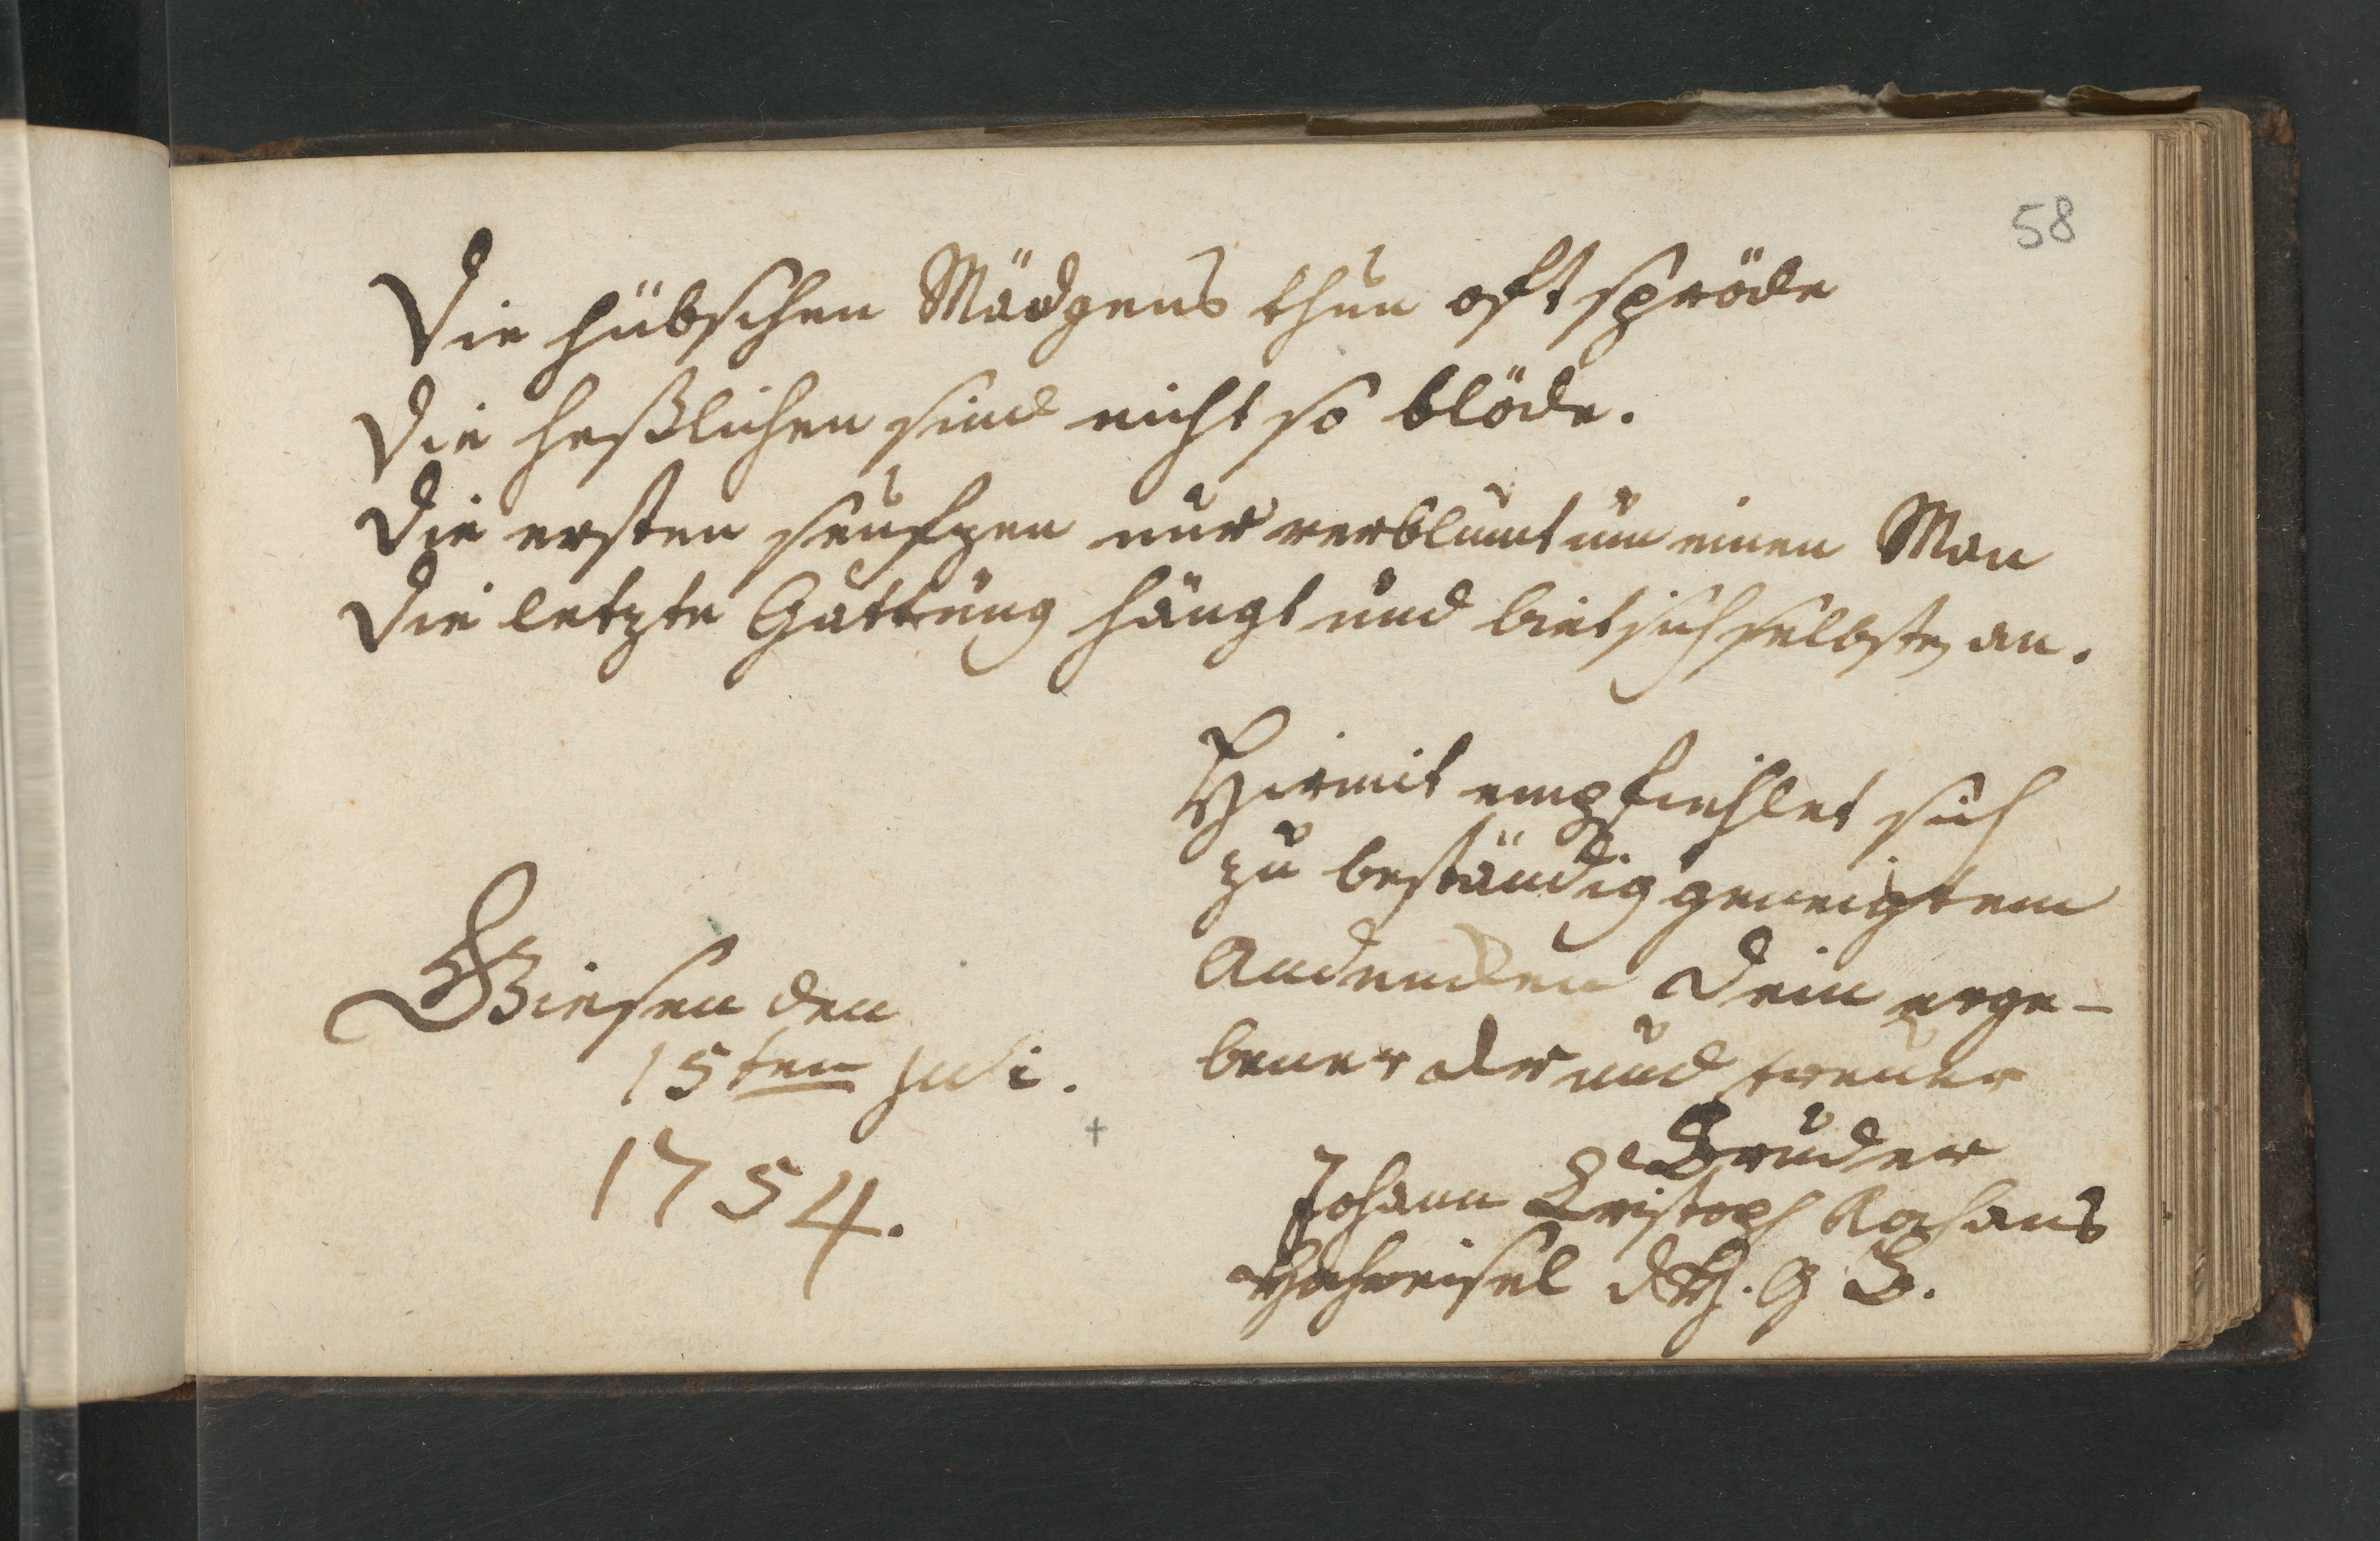 58
Die hübschen Mädgens thun oft spröde
Die heßlichen sind nicht so blöde.
Die ersten seufzen nur verblümt um einen Man
Die letzte Gattung hängt und biet sich selbsten an.
Hirmit empfiehlet sich
zu beständig geneigtem
Andencken Dein erge-
bener und treuer
Bruder
Johann Cristoph
Giesen den
15ten Juli.
1754.